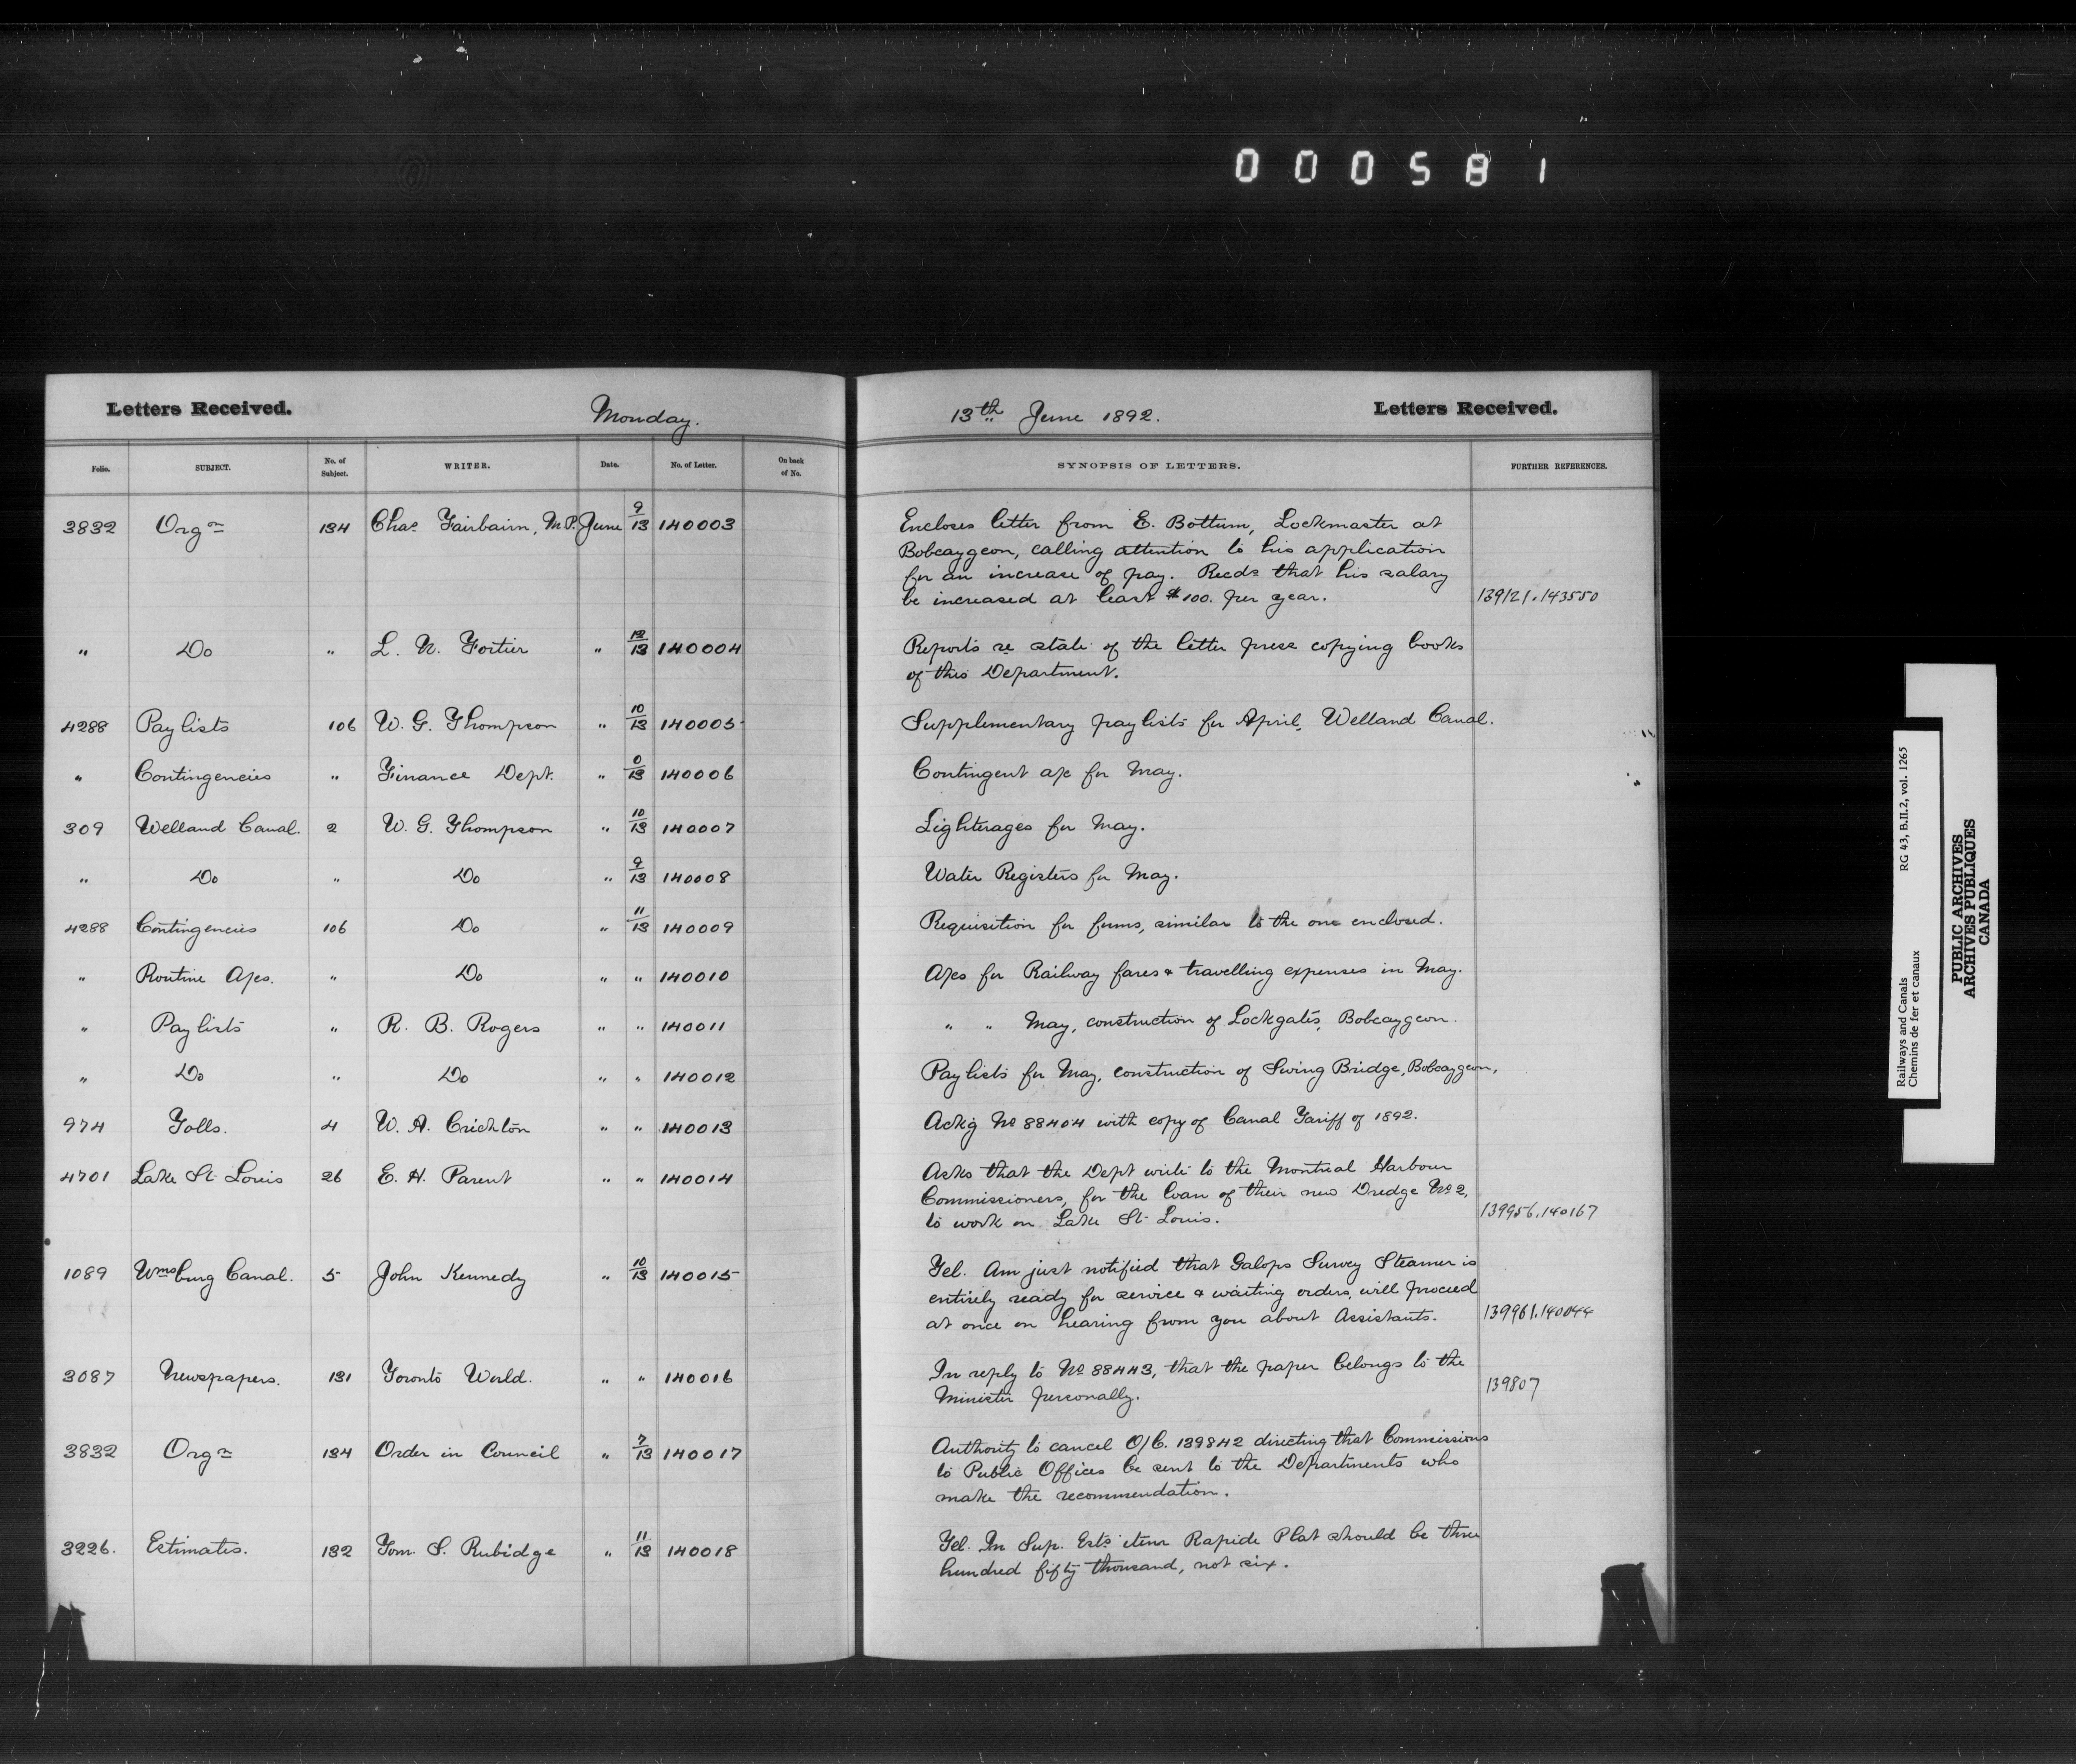 000581
Letters Received. Monday. 13th June 1892. Letters Received.
Folio. SUBJECT. No. of Subject. WRITER. Date. No. of Letter. On back of No. SYNOPSIS OF LETTERS. FURTHER REFERENCES.
3832 Orgn 134 Chas Fairbairn, M.P. June 9/13 140003 Encloses letter from E. Bottum, Lockmaster at
Bobcaygeon, calling attention to his application
for an increase of pay. Recds that his salary
be increased at least $100. per year. 139121.143550
" Do " L. N. Fortier " 12/13 140004 Reports re state of the letter press copying books
of this Department.
4288 Pay lists 106 W. G. Thompson " 10/13 140005 Supplementary pay lists for April, Welland Canal.
" Contingencies " Finance Dept. " 0/13 140006 Contingent a/c for May.
309 Welland Canal. 2 W. G. Thompson " 10/13 140007 Lighterages for May.
" Do " Do " 9/13 140008 Water Registers for May.
4288 Contingencies 106 Do " 11/13 140009 Requisition for forms, similar to the one enclosed.
" Routine A/cs. " Do " " 140010 A/cs for Railway fares & travelling expenses in May.
" Pay lists " R. B. Rogers " " 140011 " " May, construction of Lockgates, Bobcaygeon.
" Do " Do " " 140012 Pay lists for May, construction of Swing Bridge, Bobcaygeon,
974 Tolls. 4 W. A. Crichton " " 140013 Ackg No 88404 with copy of Canal Tariff of 1892.
4701 Lake St. Louis 26 E. H. Parent " " 140014 Asks that the Dept write to the Montreal Harbour
Commissioners, for the loan of their new Dredge No 2,
to work on Lake St. Louis. 139956.140167
1089 Wmsburg Canal. 5 John Kennedy " 10/13 140015 Tel. Am just notified that Galops Survey Steamer is
entirely ready for service & waiting orders, will proceed
at once on hearing from you about Assistants. 139961.140044
3087 Newspapers. 131 Toronto World. " " 140016 In reply to No 88443, that the paper belongs to the
Minister personally. 139807
3832 Orgn 134 Order in Council " 7/13 140017 Authority to cancel O/C. 139842 directing that Commissions
to Public Offices be sent to the Departments who
make the recommendation.
3226. Estimates. 132 Tom. S. Rubidge " 11/13 140018 Tel. In Sup. Ests item Rapide Plat should be three
hundred fifty thousand, not six.
Railways and Canals RG 43, B.II.2, vol. 1265
Chemins de fer et canaux
PUBLIC ARCHIVES
ARCHIVES PUBLIQUES
CANADA